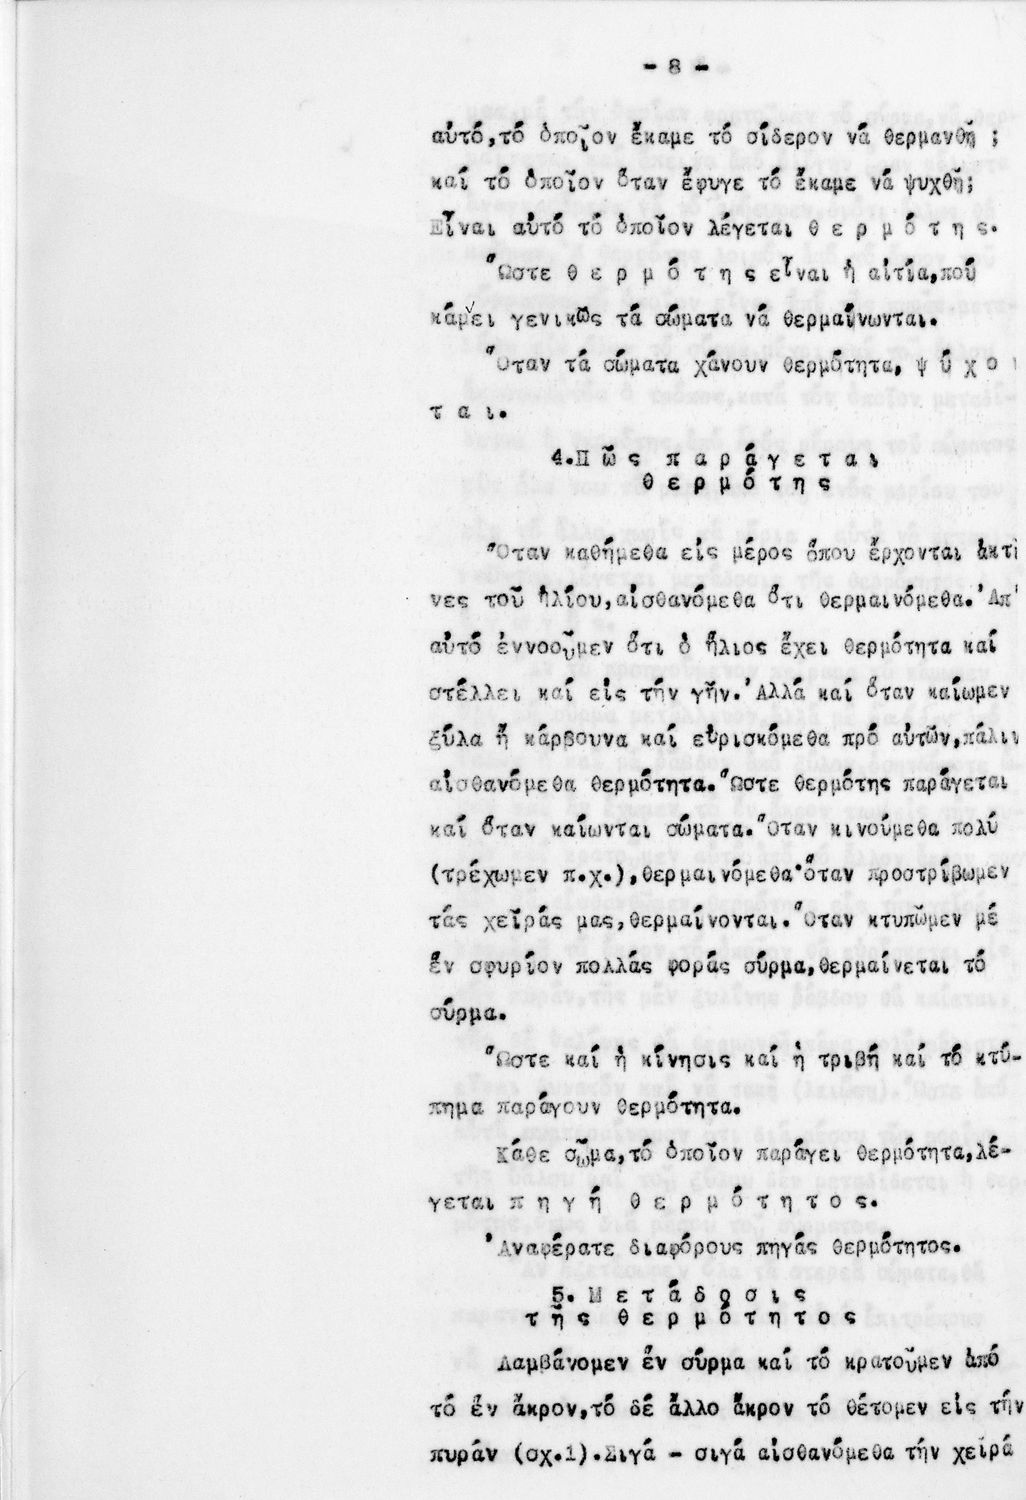 - 8 -
αὐτό,τό ὁποῖον ἔκαμε τό σίδερον νά θερμανθῇ ;
καί τό ὁποῖον ὅταν ἔφυγε τό ἔκαμε νά ψυχθῇ;
Εἶναι αὐτό τό ὁποῖον λέγεται θ ε ρ μ ό τ η ς.
Ὥστε θ ε ρ μ ό τ η ς εἶναι ἡ αἰτία,πού
κάμνει γενικῶς τά σώματα νά θερμαίνωνται.
Ὅταν τά σώματα χάνουν θερμότητα, ψ ύ χ ο ν
τ α ι.
4.Π ῶ ς π α ρ ά γ ε τ α ι
θ ε ρ μ ό τ η ς
Ὅταν καθήμεθα εἰς μέρος ὅπου ἔρχονται ἀκτῖ
νες τοῦ ἡλίου,αἰσθανόμεθα ὅτι θερμαινόμεθα.Ἀπ'
αὐτό ἐννοοῦμεν ὅτι ὁ ἥλιος ἔχει θερμότητα καί
στέλλει καί εἰς τήν γῆν.Ἀλλά καί ὅταν καίωμεν
ξύλα ἤ κάρβουνα καί εὑρισκόμεθα πρό αὐτῶν,πάλιν
αἰσθανόμεθα θερμότητα.Ὥστε θερμότης παράγεται
καί ὅταν καίωνται σώματα.Ὅταν κινούμεθα πολύ
(τρέχωμεν π.χ.),θερμαινόμεθα·ὅταν προστρίβωμεν
τάς χεῖράς μας,θερμαίνονται.Ὅταν κτυπῶμεν μέ
ἕν σφυρίον πολλάς φοράς σύρμα,θερμαίνεται τό
σύρμα.
Ὥστε καί ἡ κίνησις καί ἡ τριβή καί τό κτύ-
πημα παράγουν θερμότητα.
Κάθε σῶμα,τό ὁποῖον παράγει θερμότητα,λέ-
γεται π η γ ή θ ε ρ μ ό τ η τ ο ς.
Ἀναφέρατε διαφόρους πηγάς θερμότητος.
5. Μ ε τ ά δ ο σ ι ς
τ ῆ ς θ ε ρ μ ό τ η τ ο ς
Λαμβάνομεν ἕν σύρμα καί τό κρατοῦμεν ἀπό
τό ἕν ἄκρον,τό δέ ἄλλο ἄκρον τό θέτομεν εἰς τήν
πυράν (σχ.1).Σιγά - σιγά αἰσθανόμεθα τήν χεῖρά